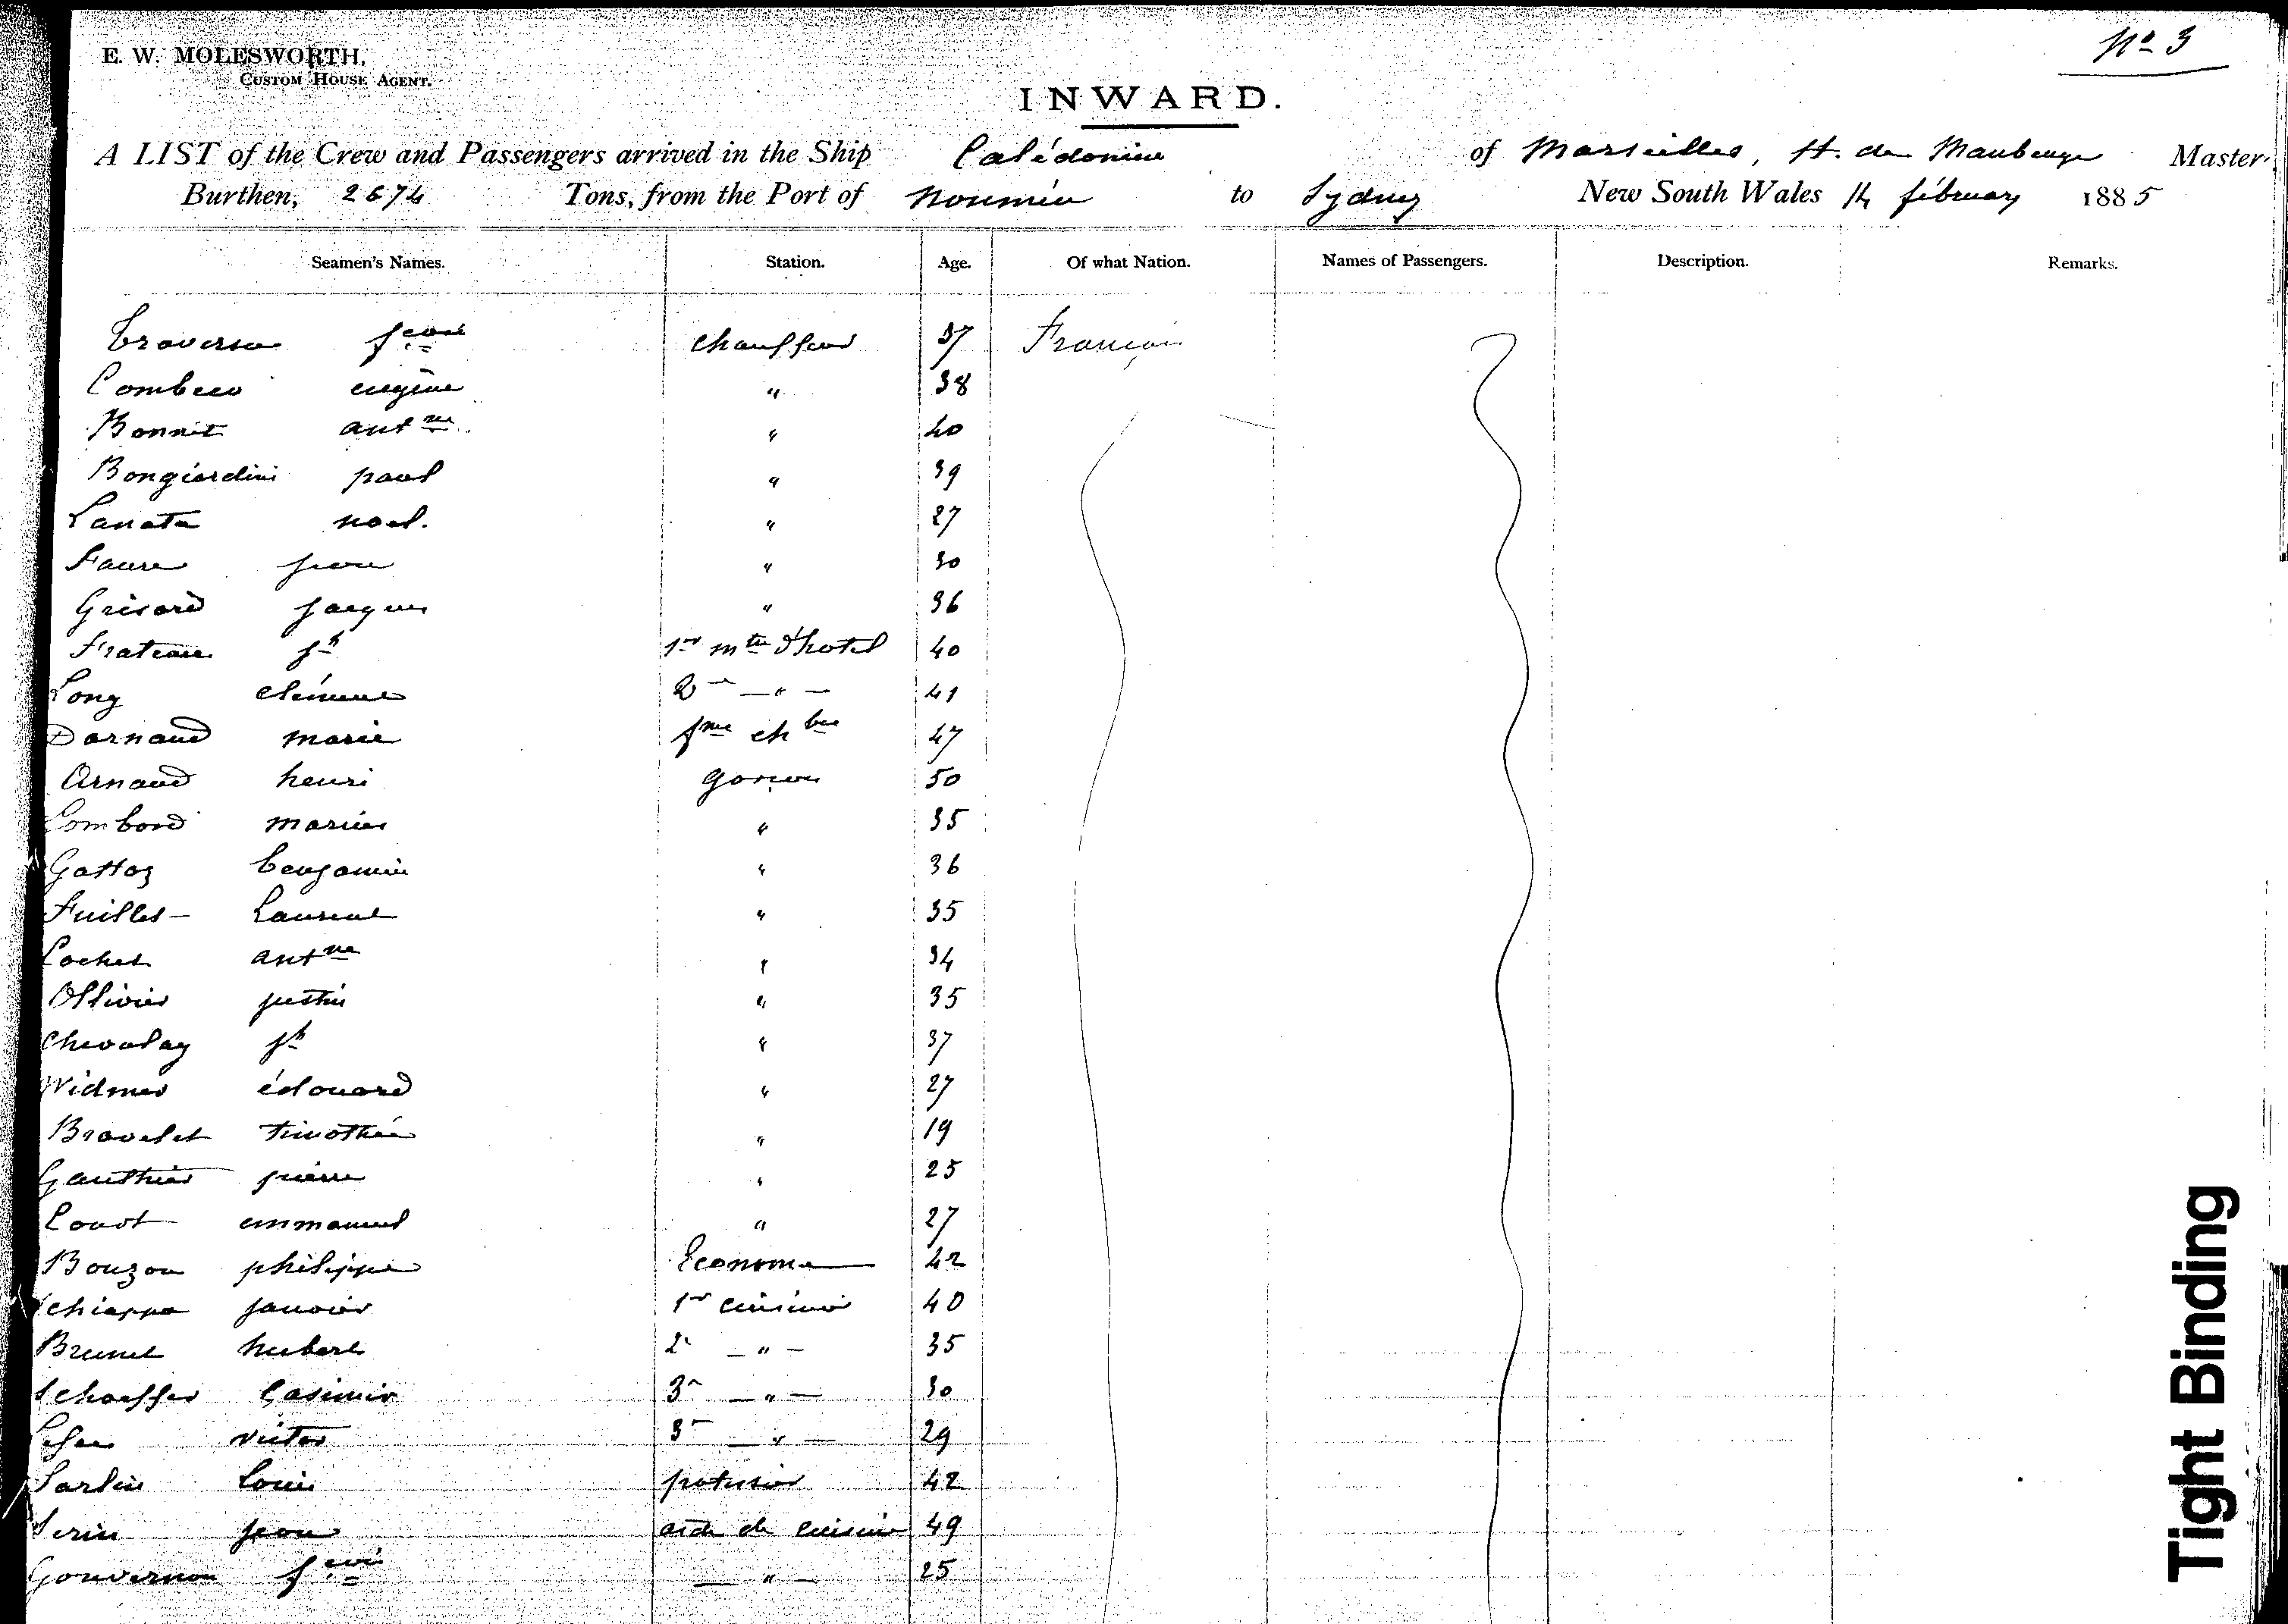 Nº 3
E. W. MOLESWORTH,
CUSTOM HOUSE AGENT.
INWARD.
A LIST of the Crew and Passengers arrived in the Ship Calédonien of Marseilles, de Maubeuge Master,
Burthen, 2674 Tons, from the Port of Nouméa to Sydney New South Wales 14 february 1885
Seamen's Names. Station. Age. Of what Nation. Names of Passengers. Description. Remarks.
fçois chauffeur 37 Français
eugène " 38
Bonnet antne " 40
Bongiardini paul " 39
Lanata noel. " 27
Faure jean " 30
Grisard jacques " 36
jh 1er mtre d'hotel 40
Long clément 2e — " — 41
Darnaud marie fme ch bre 47
Arnaud henri garçon 50
Lombard marius " 35
Gattaz benjamin " 36
Laurent " 35
Lochet antne " 34
Ollivier justin " 35
Chevalay jh " 37
Widmer édouard " 27
Bravelet timothée " 19
Gauthier pierre " 25
emmanuel " 27
Bouzon philippe Econome 42
Schiappa janvier 1er cuisinier 40
Brunet hubert 2e — " — 35
Schaeffer Casimir 3e — " — 30
victor 3e — " — 29
Sarlin Louis 42
Serin jean aide de cuisine 49
Gouvernon fçois — " — 25
Tight Binding